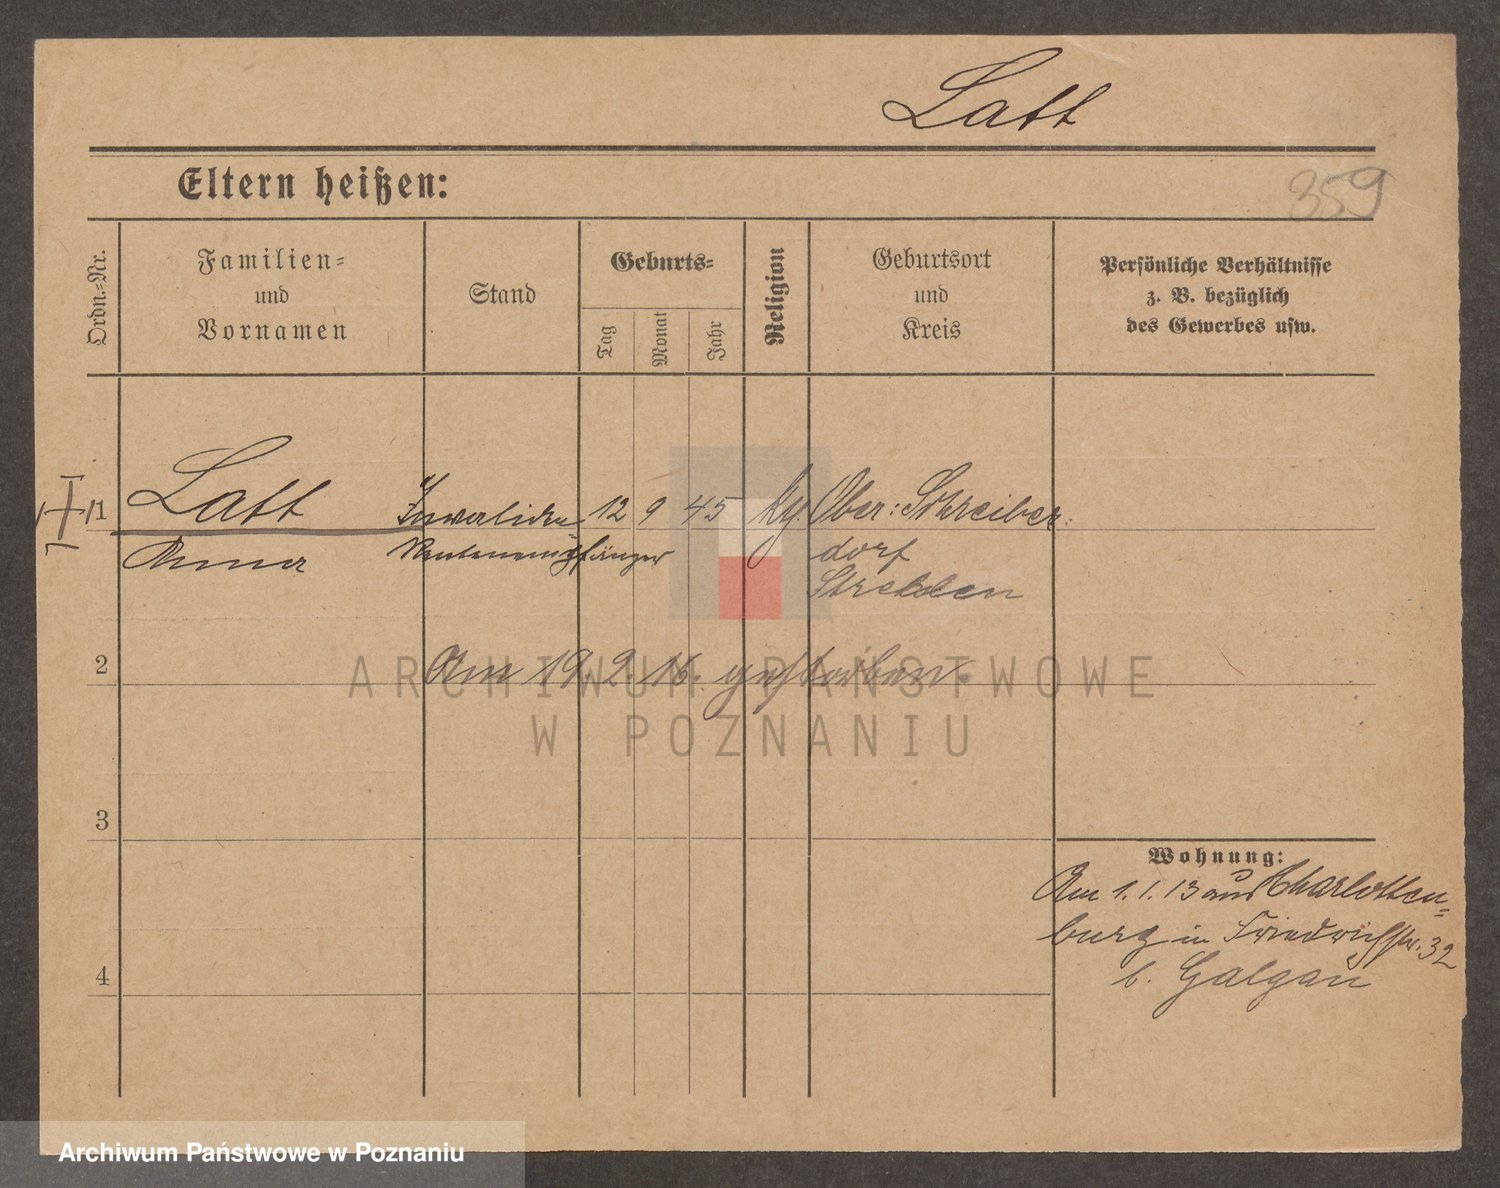 Latt
Eltern heißen:
359
Ordn.-Nr.
Familien-
und
Vornamen
Stand
Geburts-
Tag
Monat
Jahr
Religion
Geburtsort
und
Kreis
Persönliche Verhältnisse
z. B. bezüglich
des Gewerbes usw.
1 Latt Invaliden 12 9 45 Ober: Schreiber
Anna Rentenempfänger dorf
Strehlen
2 Am 19. 2. 16. gestorben.
ARCHIWUM PAŃSTWOWE
W POZNANIU
3
Wohnung:
Am 1. 1. 13 aus Charlotten-
burg in Friedrichstr. 32
4 b. Galgau
Archiwum Państwowe w Poznaniu